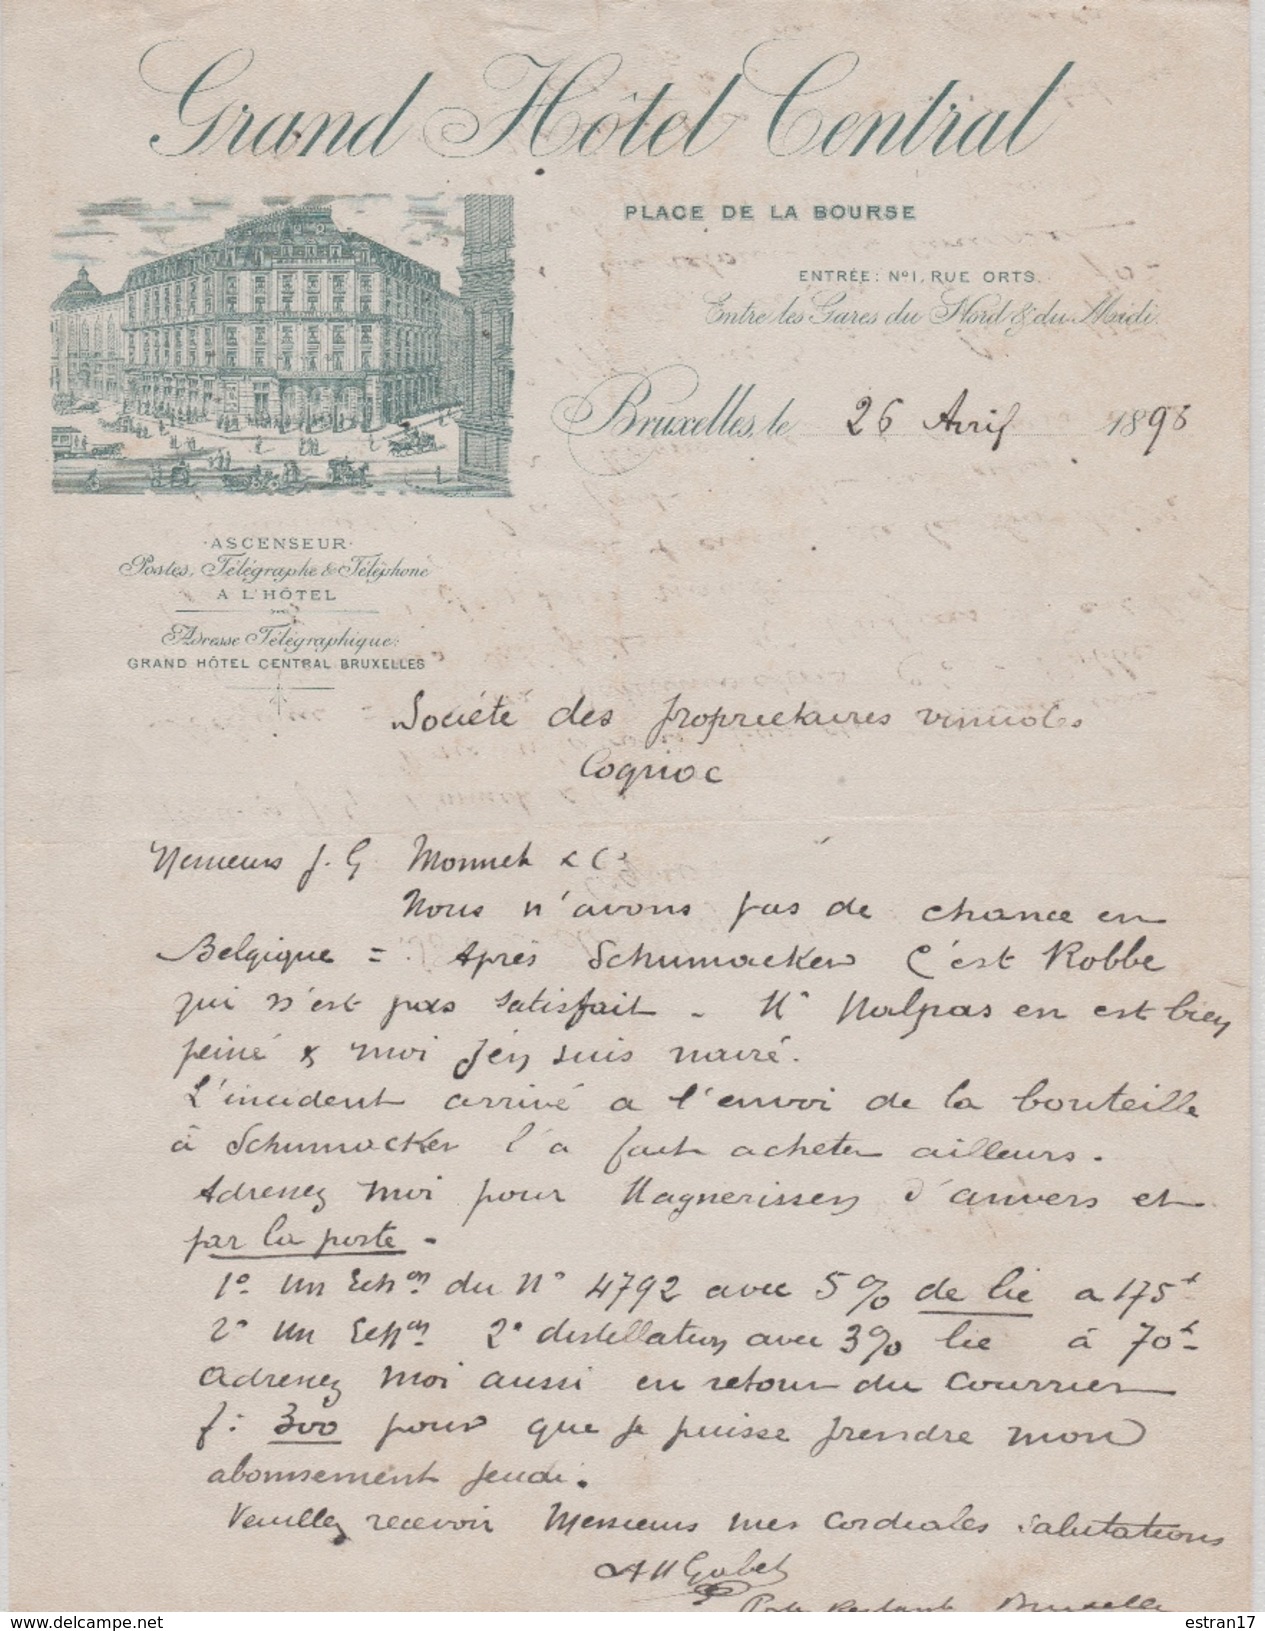 Grand Hôtel Central
PLACE DE LA BOURSE
ENTRÉE: No 1, RUE ORTS.
Entre les Gares du Nord & du Midi.
Bruxelles, le 26 Avril 1898
·ASCENSEUR·
Postes, Télégraphe & Téléphone
A L'HÔTEL
Adresse Télégraphique:
GRAND HÔTEL CENTRAL BRUXELLES
Société des propriétaires vinicoles
Cognac
Messieurs J. G. Monnet & Co
Nous n'avons pas de chance en
Belgique = Après Schumacker c'est Robbe
qui n'est pas satisfait - Mr Malpas en est bien
peiné & moi j'en suis navré.
L'incident arrivé a l'envoi de la bouteille
à Schumacker l'a fait acheter ailleurs.
Adressez moi pour Magnerissen d'anvers et
par la poste -
1o un Echon du No 4792 avec 5% de lie a 175f
2o un Echon 2e distillation avec 3% lie à 70f
Adressez moi aussi en retour du courrier
f: 300 pour que je puisse prendre mon
abonnement jeudi.
Veuillez recevoir Messieurs mes cordiales salutations
Poste Restante Bruxelles
estran17